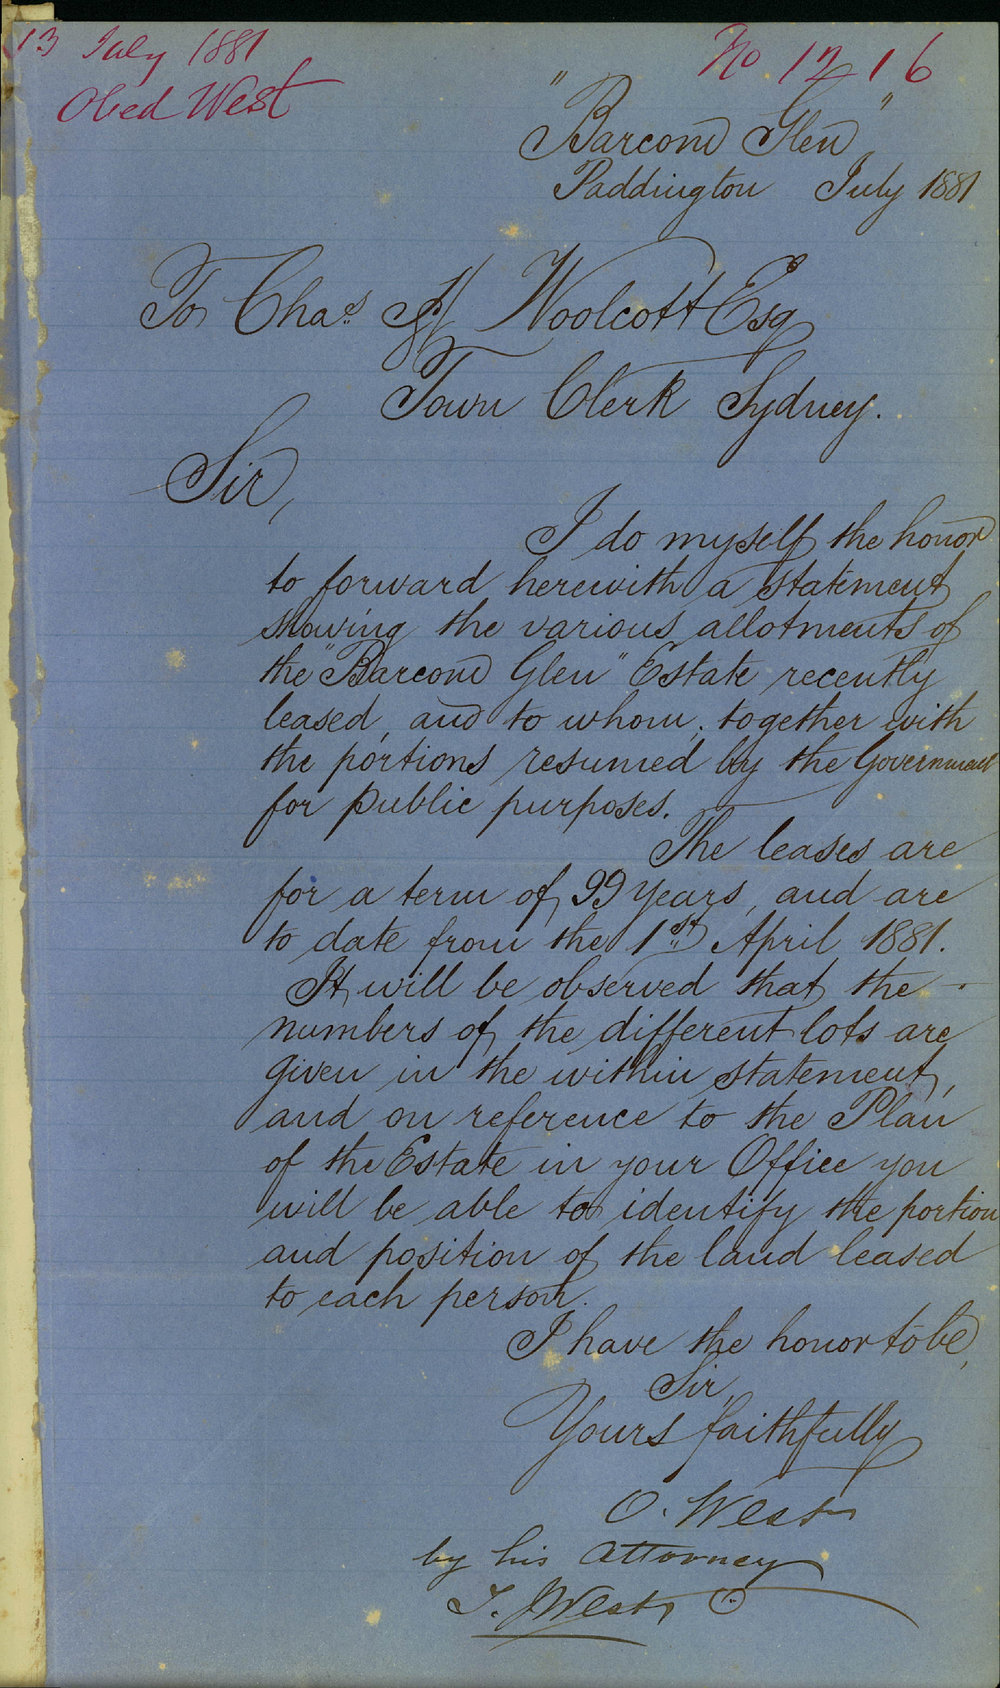 13 July 1881
Obed West
No. 1216
"Barcom Glen"
Paddington July 1881
To Chas. H Woolcott Esq
Town Clerk Sydney.
Sir,
I do myself the honor
to forward herewith a statement
showing the various allotments of
the "Barcom Glen" Estate recently
leased, and to whom, together with
the portions resumed by the Government
for public purposes.
The leases are
for a term of 99 years, and are
to date from the 1st April 1881.
It will be observed that the
numbers of the different lots are
given in the within statement,
and on reference to the Plan
of the Estate in your Office you
will be able to identify the portion
and position of the land leased
to each person.
I have the honor to be,
Sir,
Yours faithfully
O. West
by his Attorney
T. J West